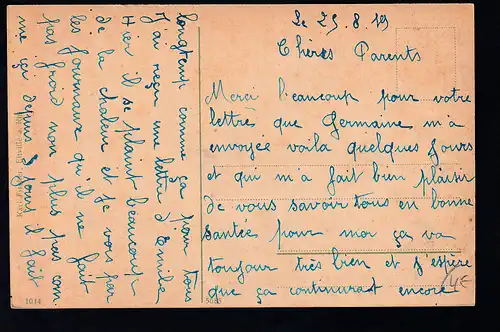 Le 25. 8. 19
Chères Parents
Merci beaucoup pour votre
lettre que Germaine m'a
envoyée voila quelques jours
et qui m'a fait bien plaisir
de vous savoir tous en bonne
santée pour moi ça va
toujour très bien et j'espère
que ça continurat encore
longtemp comme ça pour tous
J'ai reçu une lettre d'Emile
Hier il se plaint beaucoup
de la chaleur et je vois par
les journaux qu'il ne fait
pas froid non plus pas com
me ici depuis 8 jours il fait
Karl
1014
4€